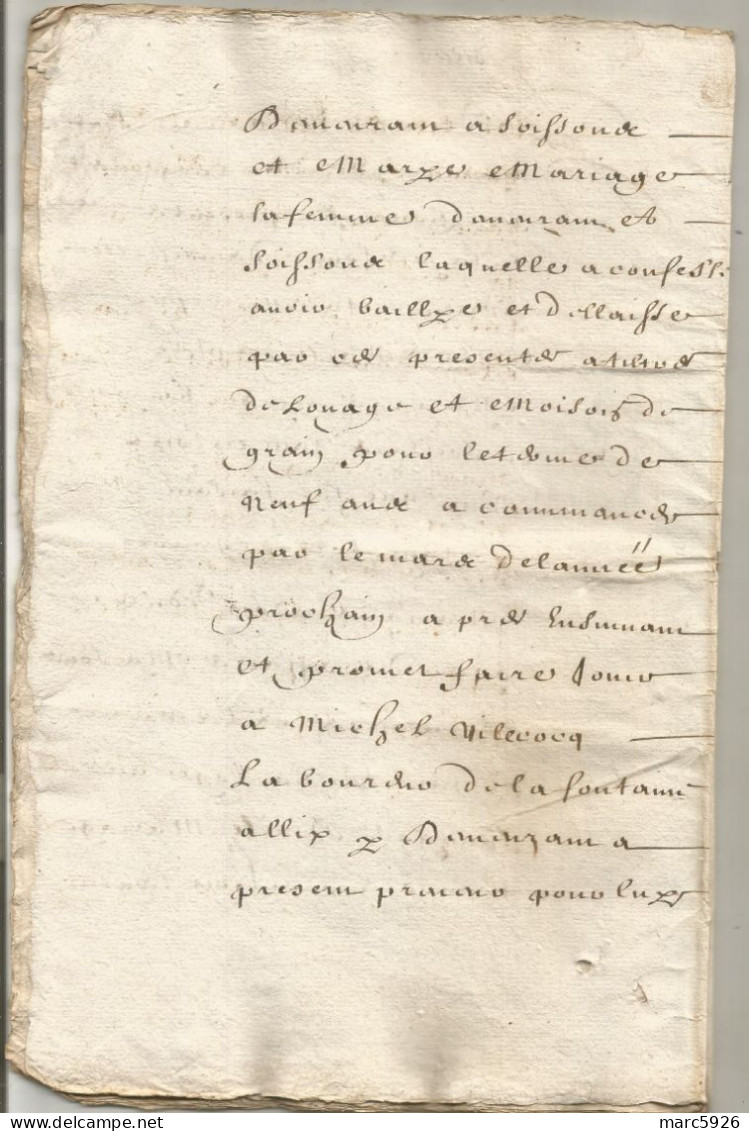 demeurant a Soissons
et Marye Mariage
sa femme demeurant et
Soissons laquelle a confesse
avoir baillye et dellaisse
par ces presentes a tiltre
de Louage et Moison de
grain pour le terme de
Neuf ans a commancer
par le mars de lannéé
prochain apres Ensuivant
et promet faire Jouir
a Michel Vilcocq
Laboureur de la fontaine
allix y demeurant a
present preneur pour luy
marc5926